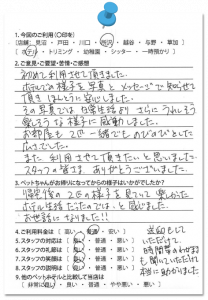 1.今回のご利用(〇印を)
【店舗：見沼・戸田・川口・所沢・越谷・与野・草加】
(ホテル・トリミング・幼稚園・シッター・その他)
2.ご意見・ご要望・苦情・ご感想
初めて利用させて頂きました。
ホテルでの様子を写真とメッセージで知らせて
頂きほんとうに安心しました。
その写真では自宅生活よりさらにうれしそう
楽しそうな様子に感動しました。
お部屋も2匹一緒でものびのびとした
広さでした。
また利用させて頂きたいと思いました。
スタッフの皆様ありがとうございました。
3.ペットちゃんがお帰りになってからの様子はいかがでしたか?
帰宅後の2匹の様子を見ても楽しかった
ホテル生活だったのでは…と感じました。
お世話になりました!!
4.ご利用料金は(高い・普通・安い)
5.スタッフの対応は(良い・普通・悪い)
6.スタッフの笑顔は(良い・普通・悪い)
7.スタッフの説明は(良い・普通・悪い)
8.他のペットホテルと比較して当店は
(非常に良い・良い・普通・やや悪い・悪い)
送迎もして
いただけて、
時間等のわがまま
も聞いていただけて
本当に助かりました